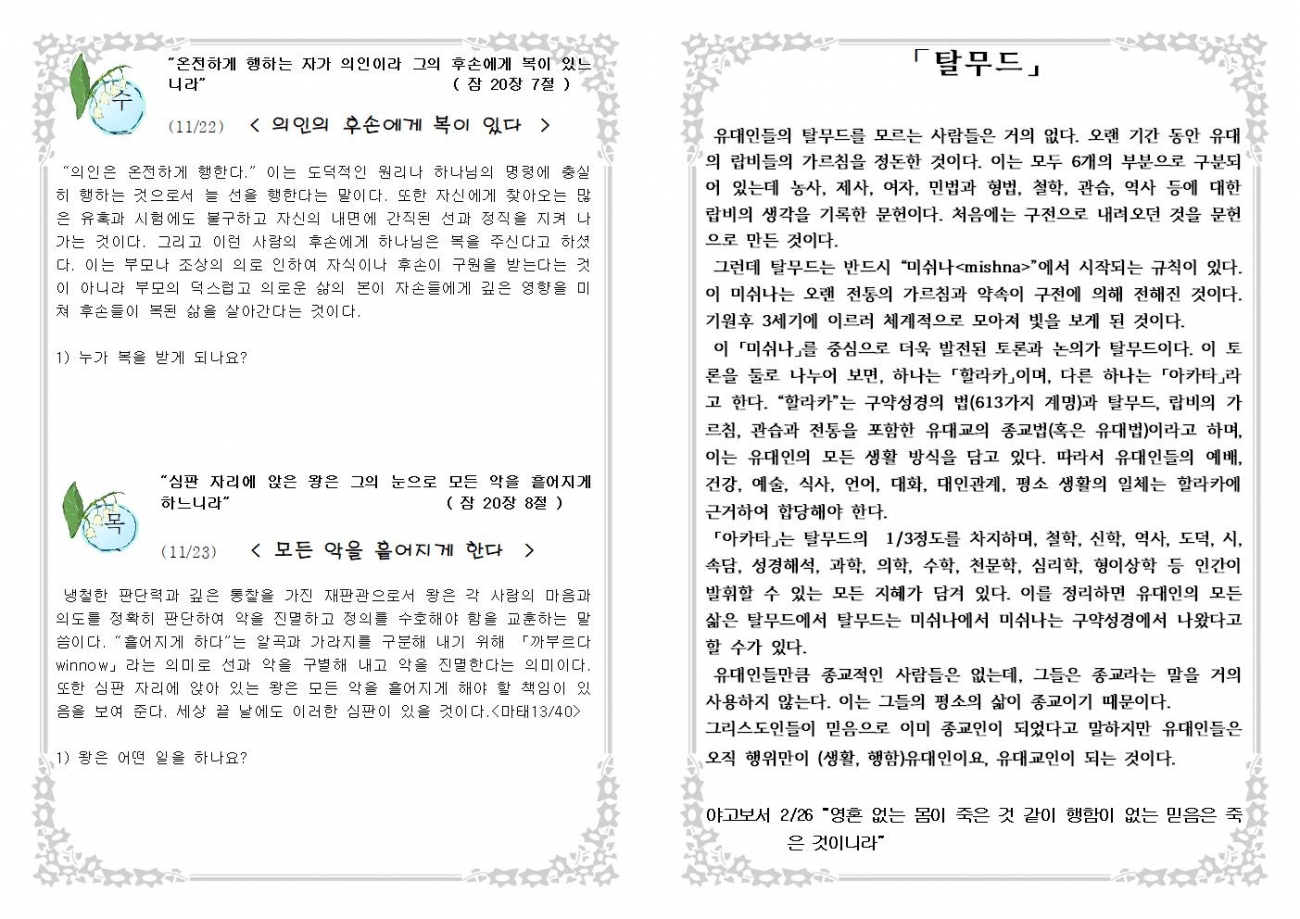 “온전하게 행하는 자가 의인이라 그의 후손에게 복이 있느
니라” ( 잠 20장 7절 )
수
(11/22) < 의인의 후손에게 복이 있다 >
“의인은 온전하게 행한다.” 이는 도덕적인 원리나 하나님의 명령에 충실
히 행하는 것으로서 늘 선을 행한다는 말이다. 또한 자신에게 찾아오는 많
은 유혹과 시험에도 불구하고 자신의 내면에 간직된 선과 정직을 지켜 나
가는 것이다. 그리고 이런 사람의 후손에게 하나님은 복을 주신다고 하셨
다. 이는 부모나 조상의 의로 인하여 자식이나 후손이 구원을 받는다는 것
이 아니라 부모의 덕스럽고 의로운 삶의 본이 자손들에게 깊은 영향을 미
쳐 후손들이 복된 삶을 살아간다는 것이다.
1) 누가 복을 받게 되나요?
“심판 자리에 앉은 왕은 그의 눈으로 모든 악을 흩어지게
하느니라” ( 잠 20장 8절 )
목
(11/23) < 모든 악을 흩어지게 한다 >
냉철한 판단력과 깊은 통찰을 가진 재판관으로서 왕은 각 사람의 마음과
의도를 정확히 판단하여 악을 진멸하고 정의를 수호해야 함을 교훈하는 말
씀이다. “흩어지게 하다”는 알곡과 가라지를 구분해 내기 위해 「까부르다
winnow」라는 의미로 선과 악을 구별해 내고 악을 진멸한다는 의미이다.
또한 심판 자리에 앉아 있는 왕은 모든 악을 흩어지게 해야 할 책임이 있
음을 보여 준다. 세상 끝 날에도 이러한 심판이 있을 것이다.<마태13/40>
1) 왕은 어떤 일을 하나요?
「탈무드」
유대인들의 탈무드를 모르는 사람들은 거의 없다. 오랜 기간 동안 유대
의 랍비들의 가르침을 정돈한 것이다. 이는 모두 6개의 부분으로 구분되
어 있는데 농사, 제사, 여자, 민법과 형법, 철학, 관습, 역사 등에 대한
랍비의 생각을 기록한 문헌이다. 처음에는 구전으로 내려오던 것을 문헌
으로 만든 것이다.
그런데 탈무드는 반드시 “미쉬나<mishna>”에서 시작되는 규칙이 있다.
이 미쉬나는 오랜 전통의 가르침과 약속이 구전에 의해 전해진 것이다.
기원후 3세기에 이르러 체계적으로 모아져 빛을 보게 된 것이다.
이 「미쉬나」를 중심으로 더욱 발전된 토론과 논의가 탈무드이다. 이 토
론을 둘로 나누어 보면, 하나는 「할라카」이며, 다른 하나는 「아카타」라
고 한다. “할라카”는 구약성경의 법(613가지 계명)과 탈무드, 랍비의 가
르침, 관습과 전통을 포함한 유대교의 종교법(혹은 유대법)이라고 하며,
이는 유대인의 모든 생활 방식을 담고 있다. 따라서 유대인들의 예배,
건강, 예술, 식사, 언어, 대화, 대인관계, 평소 생활의 일체는 할라카에
근거하여 합당해야 한다.
「아카타」는 탈무드의 1/3정도를 차지하며, 철학, 신학, 역사, 도덕, 시,
속담, 성경해석, 과학, 의학, 수학, 천문학, 심리학, 형이상학 등 인간이
발휘할 수 있는 모든 지혜가 담겨 있다. 이를 정리하면 유대인의 모든
삶은 탈무드에서 탈무드는 미쉬나에서 미쉬나는 구약성경에서 나왔다고
할 수가 있다.
유대인들만큼 종교적인 사람들은 없는데, 그들은 종교라는 말을 거의
사용하지 않는다. 이는 그들의 평소의 삶이 종교이기 때문이다.
그리스도인들이 믿음으로 이미 종교인이 되었다고 말하지만 유대인들은
오직 행위만이 (생활, 행함)유대인이요, 유대교인이 되는 것이다.
야고보서 2/26 “영혼 없는 몸이 죽은 것 같이 행함이 없는 믿음은 죽
은 것이니라”